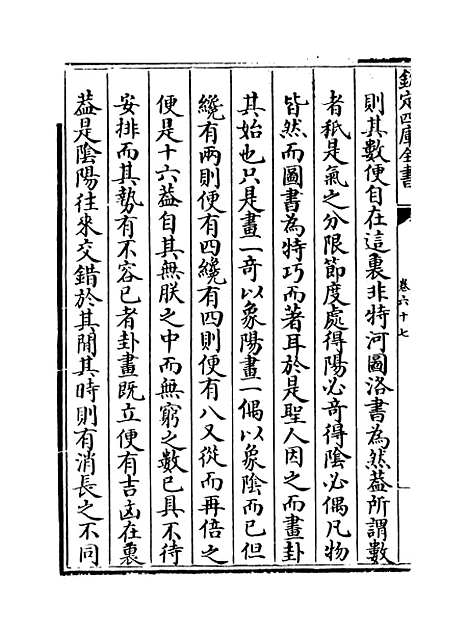 欽定四庫全書
卷六十七
則其數便自在這裏非特河圖洛書為然葢所謂數
者秖是氣之分限節度處得陽必竒得陰必偶凡物
皆然而圖書為特巧而著耳於是聖人因之而畫卦
其始也只是畫一竒以象陽畫一偶以象陰而已但
纔有兩則便有四纔有四則便有八又從而再倍之
便是十六葢自其無朕之中而無窮之數已具不待
安排而其勢有不容已者卦畫既立便有吉凶在裏
葢是陰陽往來交錯於其間其時則有消長之不同